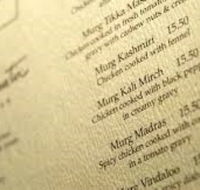 Murg Tikka Mas
Chicken cooked in fresh tomato
gravy with cashew nuts & cre
Murg Kashmiri 15.50
Chicken cooked with fennel
Murg Kali Mirch 15.50
Chicken cooked with black pepp
in creamy gravy
Murg Madras 15.50
Spicy chicken cooked with
in a tomato gravy
Murg Vindaloo